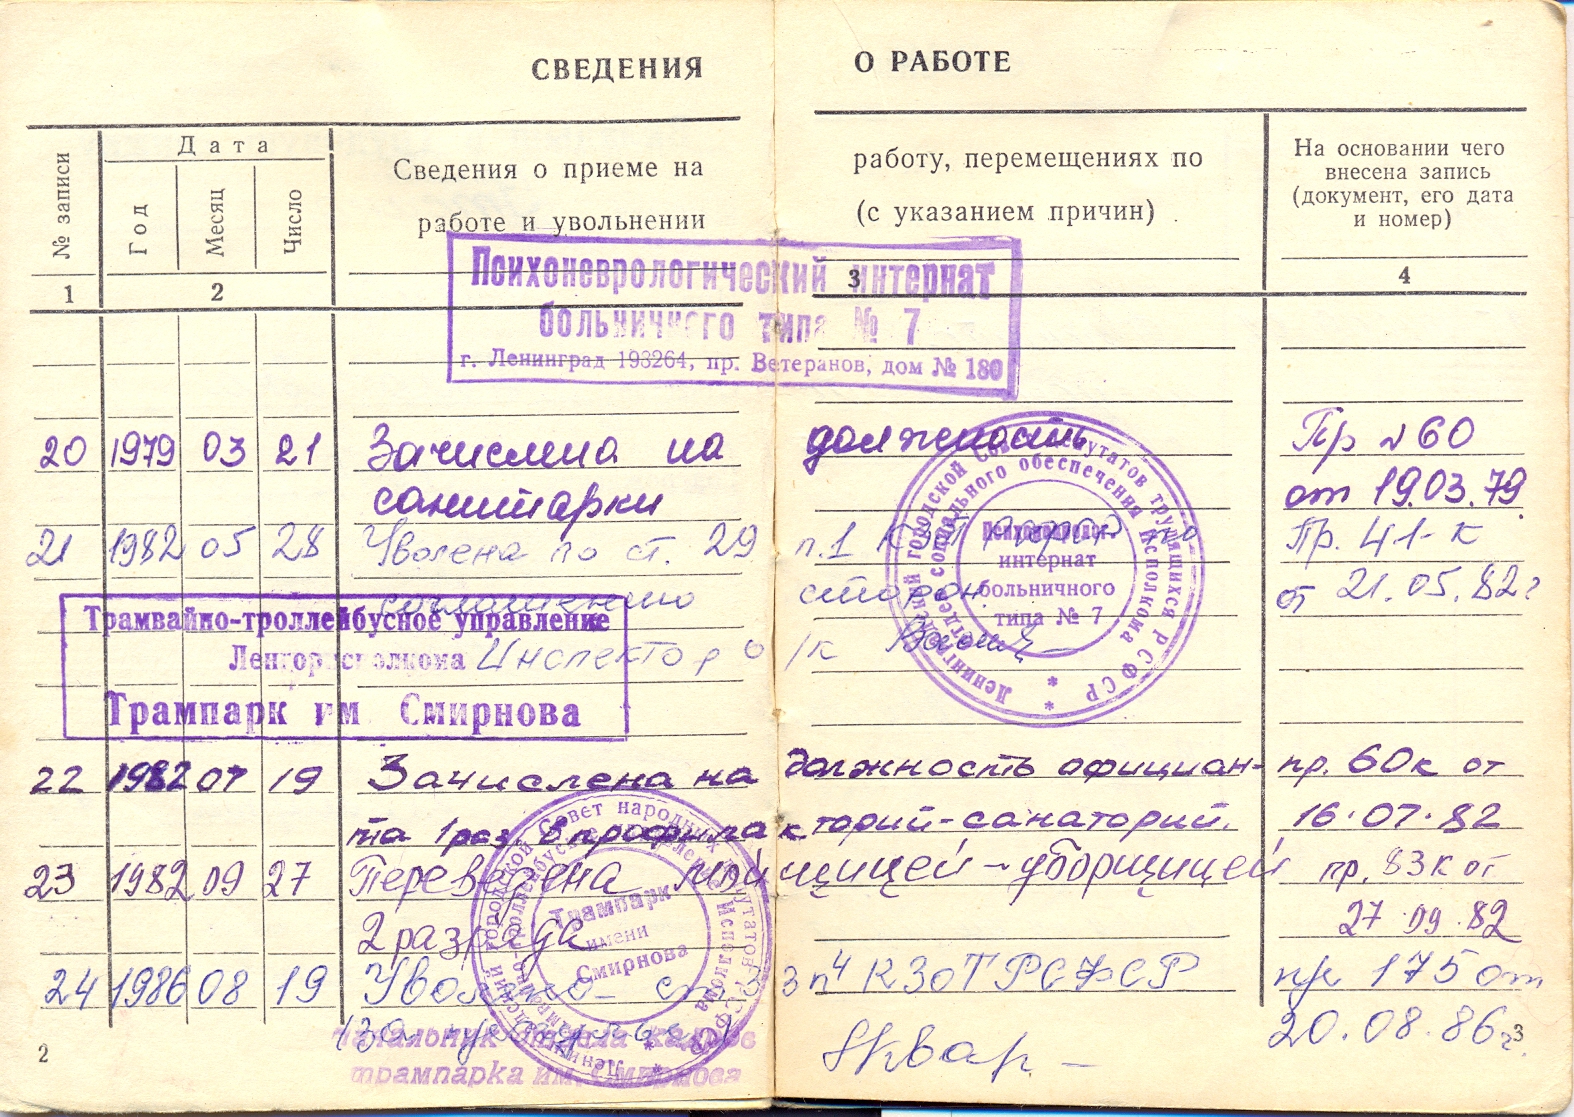 СВЕДЕНИЯ О РАБОТЕ
№ записи
Дата
Год
Месяц
Число
Сведения о приеме на работу, перемещениях по
работе и увольнении (с указанием причин)
На основании чего
внесена запись
(документ, его дата
и номер)
1 2 3 4
Психоневрологический интернат
больничного типа № 7
г. Ленинград 193264, пр. Ветеранов, дом № 180
20 1979 03 21 Зачислена на должность Пр №60
санитарки от 19.03.79
21 1982 05 28 Уволена по ст. 29 п.1 КЗоТ РСФСР по Пр. 41-к
соглашению сторон от 21.05.82г
Трамвайно-троллейбусное управление
Ленгорисполкома
Трампарк им Смирнова
Инспектор о/к
Психоневролог.
интернат
больничного
типа № 7
22 1982 07 19 Зачислена на должность официан- пр. 60к от
та 1 раз. в профилакторий-санаторий. 16.07.82
23 1982 09 27 Переведена мойщицей-уборщицей пр. 83к от
2 разряда 27.09.82
Трампарк
имени
Смирнова
24 1986 08 19 п4 КЗоТ РСФСР пр 175 от
20.08.86г.
Начальник отдела кадров
трампарка им. Смирнова
2
3